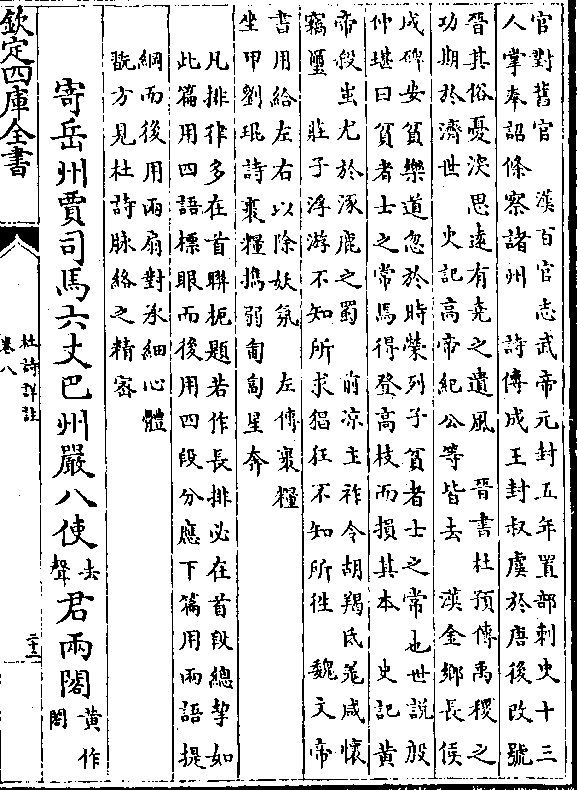 官對舊官　漢百官志武帝元封五年置部刺史十三
人掌奉詔條察諸州　詩傳成王封叔虞於唐後改號
晉其俗憂深思遠有堯之遺風　晉書杜預傳禹稷之
功期於濟世　史記高帝紀公等皆去　漢金鄉長侯
成碑安貧樂道忽於時榮列子貧者士之常也世說殷
仲堪曰貧者士之常焉得登高枝而損其本　史記黃
帝殺蚩尤於涿鹿之蜀　前凉主祚令胡羯氐羌咸懷
竊璽　莊子浮游不知所求猖狂不知所往　魏文帝
書用給左右以除妖氛　左傳裹糧
坐甲劉琨詩裹糧携弱匍匐星奔
凡排律多在首聯扼題若作長排必在首段總挈如
此篇用四語標眼而後用四段分應下篇用兩語提
綱而後用兩扇對承細心體
翫方見杜詩脉絡之精審
寄岳州賈司馬六丈巴州嚴八使去聲君兩閣黃作閤
欽定四庫全書
杜詩詳註
卷八
二十二